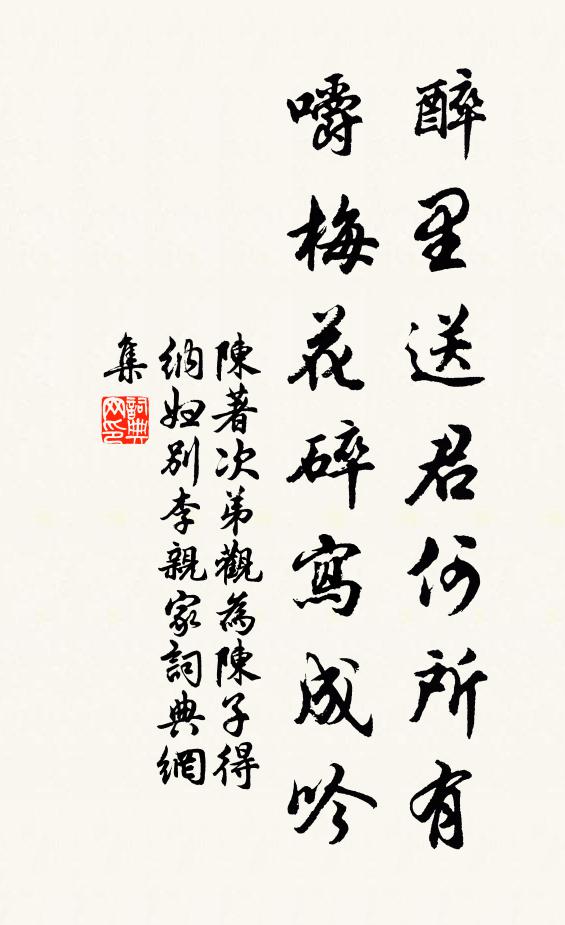 醉里送君何所有
嚼梅花碎寫成吟
陳著次弟觀為陳子得
納婦別李親家詞典網
集
詞典
网印